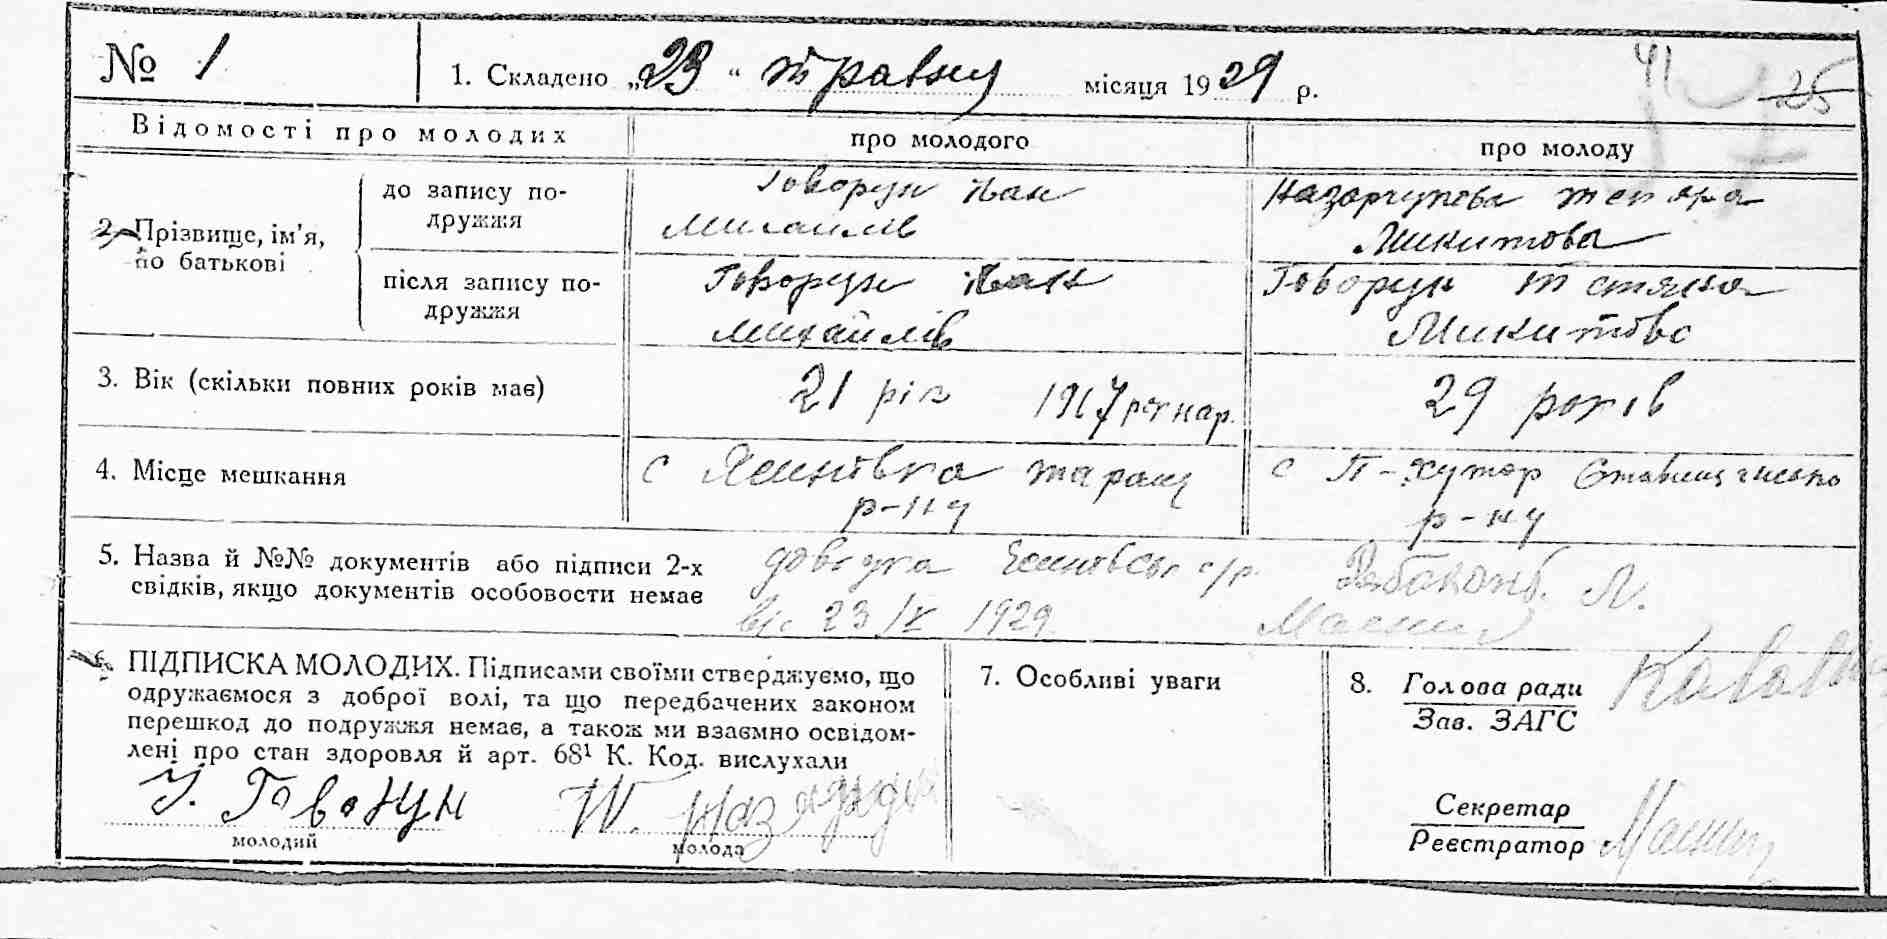 № 1
1. Складено „23“ травня місяця 1929 р.
41
25
Відомості про молодих
про молодого
про молоду
2. Прізвище, ім’я, по батькові
до запису подружжя
Говорун Іван
Михайлів
Микитова
після запису подружжя
Говорун Іван
Михайлів
Говорун Тетяна
Микитова
3. Вік (скільки повних років має)
21 рік
29 років
4. Місце мешкання
с Яснівка таращ
р-ну
с П-хутор Ставищанського
р-ну
5. Назва й №№ документів або підписи 2-х
свідків, якщо документів особовости немає
довідка с/р.
від 23 1929
6. ПІДПИСКА МОЛОДИХ. Підписами своїми стверджуємо, що
одружаємося з доброї волі, та що передбачених законом
перешкод до подружжя немає, а також ми взаємно освідом-
лені про стан здоровля й арт. 68¹ К. Код. вислухали
Говорун
молодий
молода
7. Особливі уваги
8. Голова ради
Зав. ЗАГС
Секретар
Реєстратор